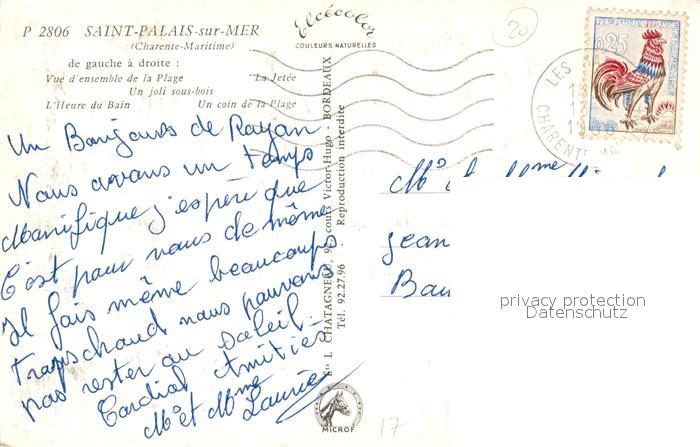 P 2806 SAINT-PALAIS-sur-MER
(Charente-Maritime)
de gauche à droite :
Vue d'ensemble de la Plage La Jetée
Un joli sous-bois
L'Heure du Bain Un coin de la Plage
Elcécolor
COULEURS NATURELLES
20
REPUBLIQUE FRANÇAISE
0,25
LES
CHARENTE MA
Un Bonjours de Royan
Nous avons un temps
Manifique j'espère que
C'est pour vous de même
Il fais même beaucoups
Trop chaud nous pouvons
pas rester au soleil.
Cordial Amitiés
Mr et Mme Laurier
L. CHATAGNEAU, cours Victor-Hugo - BORDEAUX
Tél. 92.27.96 Reproduction interdite
MICROF
17
Mr et Mme
Jean
Bau
privacy protection
Datenschutz